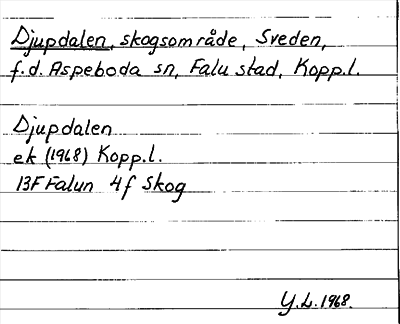 Djupdalen, skogsområde, Sveden,
f.d. Aspeboda sn, Falu stad, Kopp.l.
Djupdalen
ek (1968) Kopp.l.
13F Falun 4f Skog
Y.L. 1968.